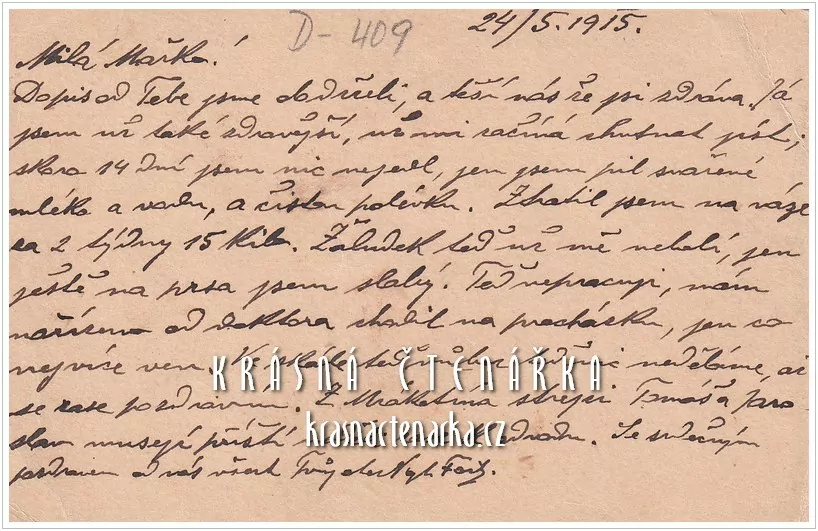 D-409
24/5.1915.
Milá Mařko!
Dopis od Tebe jsme obdrželi, a těší nás že jsi zdráva. Já
jsem už také zdravější, už mi začíná chutnat jíst,
skoro 14 dní jsem nic nejedl, jen jsem pil svařené
mléko a vodu, a čistou polévku. Ztratil jsem na váze
za 2 týdny 15 Kilo. Žaludek teď už mě nebolí, jen
ještě na prsa jsem slabý. Teď nepracuji, mám
nařízeno od doktora chodit na procházku, jen co
nejvíce ven. Ve skále teď neděláme, až
KRÁSNÁ ČTENÁŘKA
se zase pozdravím. Z strejci Tomáš a Jaro
slav musejí příští Se srdečným
krasnactenarka.cz
pozdravem od nás všech Tvůj otec